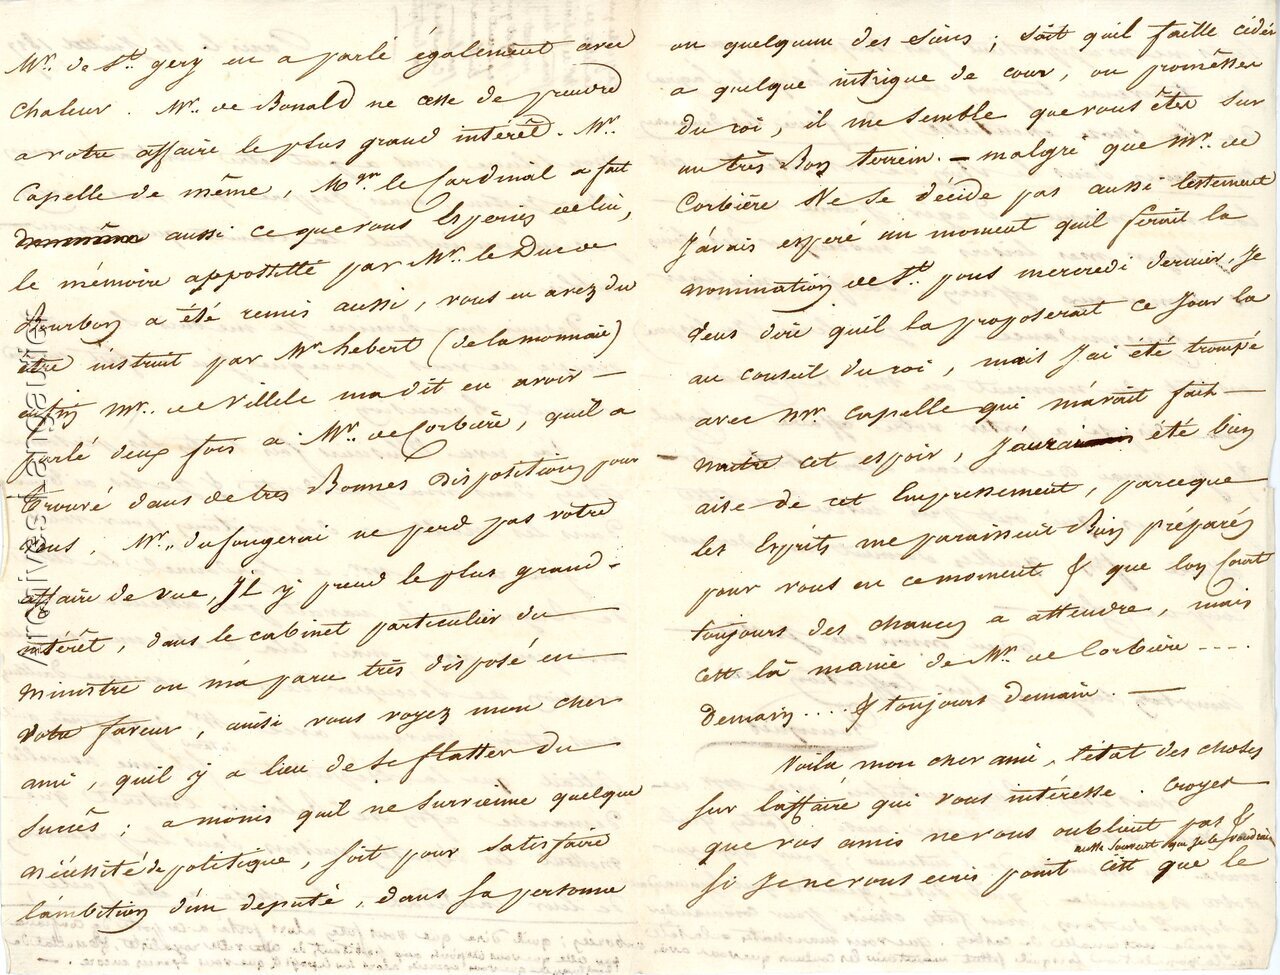 Mr. de St. gery en a parlé également avec
chaleur. Mr. de Bonald ne cesse de prendre
a votre affaire le plus grand intérêt. Mr.
Capelle de même, Mgr. le Cardinal a fait
aussi ce que vous Esperiez de lui,
le mémoire appostillé par Mr. le Duc de
Bourbon a été remis aussi, vous en avez du
être instruit par Mr hebert (de la monnaie)
enfin Mr. de Villele m'a dit en avoir
parlé deux fois a Mr. de Corbière, qu'il a
trouvé dans de très Bonnes Dispositions pour
vous, Mr. dufougerai ne perd pas votre
affaire de vue, Il y prend le plus grand
intérêt, dans le cabinet particulier du
ministre on m'a paru très disposé en
votre faveur, ainsi vous voyez mon cher
ami, qu'il y a lieu de se flatter du
succès; a moins qu'il ne survienne quelque
nécéssité de politique, soit pour satisfaire
l'ambition d'un deputé, dans sa personne
ou quelqu'un des siens; soit qu'il faille céder
a quelque intrigue de cour, ou promesses
Du roi, il me semble que vous êtes sur
un très Bon terrein. — malgré que Mr. de
Corbière Ne se décide pas aussi lestement
J'avais esperé un moment qu'il ferait la
nomination de St. pons mercredi dernier, Je
veux dire qu'il la proposerait ce Jour la
au conseil du roi, mais J'ai été trompé
avec Mr. Capelle qui m'avait fait
naitre cet espoir, J'aurais été bien
aise de cet Empressement, parceque
les Esprits me paraissent Bien préparés
pour vous en ce moment & que l'on Court
toujours des chances a attendre, mais
cest là manie de Mr. de Corbière ....
Demain .... & toujours demain. —
Voilà mon cher ami, l'état des choses
sur l'affaire qui vous intéresse. Croyez
que vos amis ne vous oublient pas &
si Je ne vous ecris point aussi souvent que Je le voudrais c'est que le
ArchivesLanguedoc